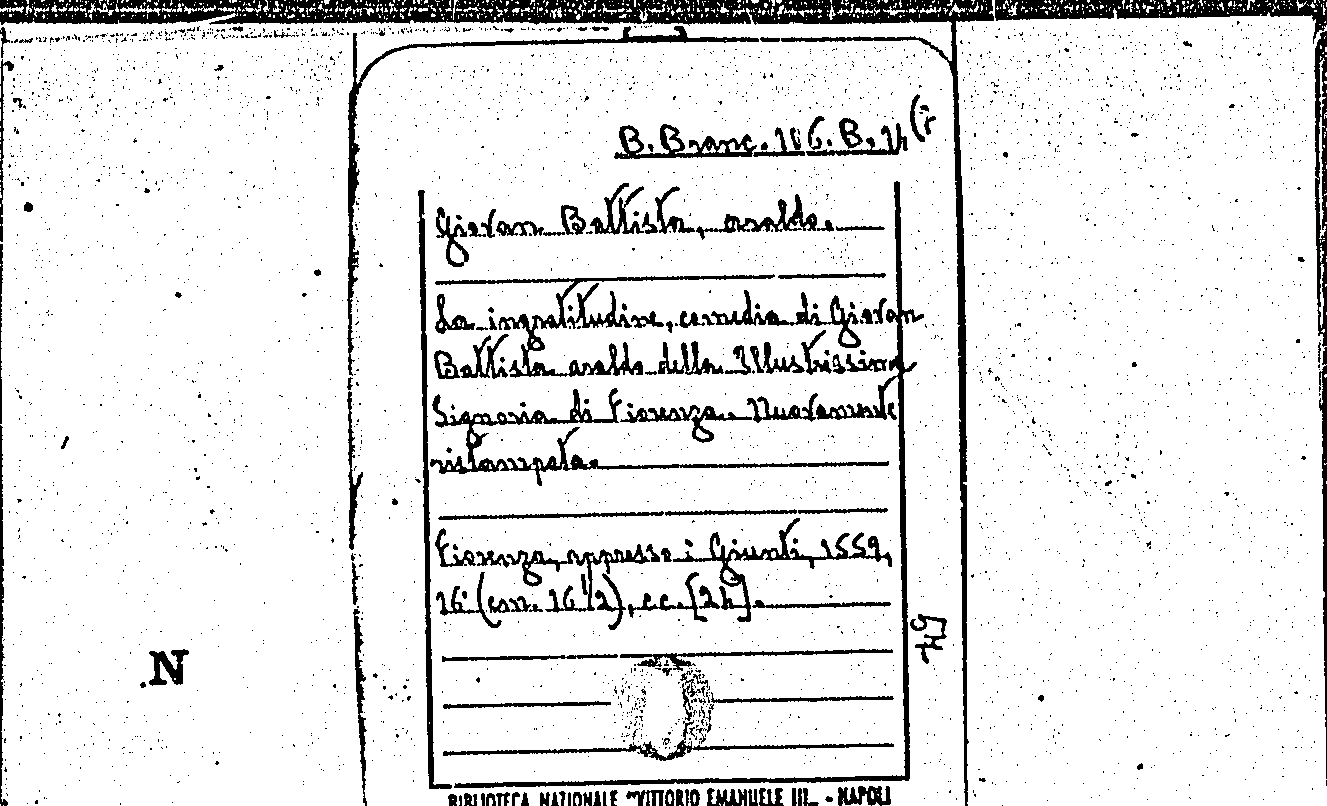 B. Branc. 106. B. 24 (ir
Giovan Battista, araldo.
La ingratitudine, comedia di Giovan
Battista araldo della Illustrissima
Signoria di Fiorenza. Nuovamente
ristampata.
Fiorenza, appresso i Giunti, 1559,
16° (cm. 16 1/2), cc. [24].
54
N
BIBLIOTECA NAZIONALE "VITTORIO EMANUELE III„ - NAPOLI